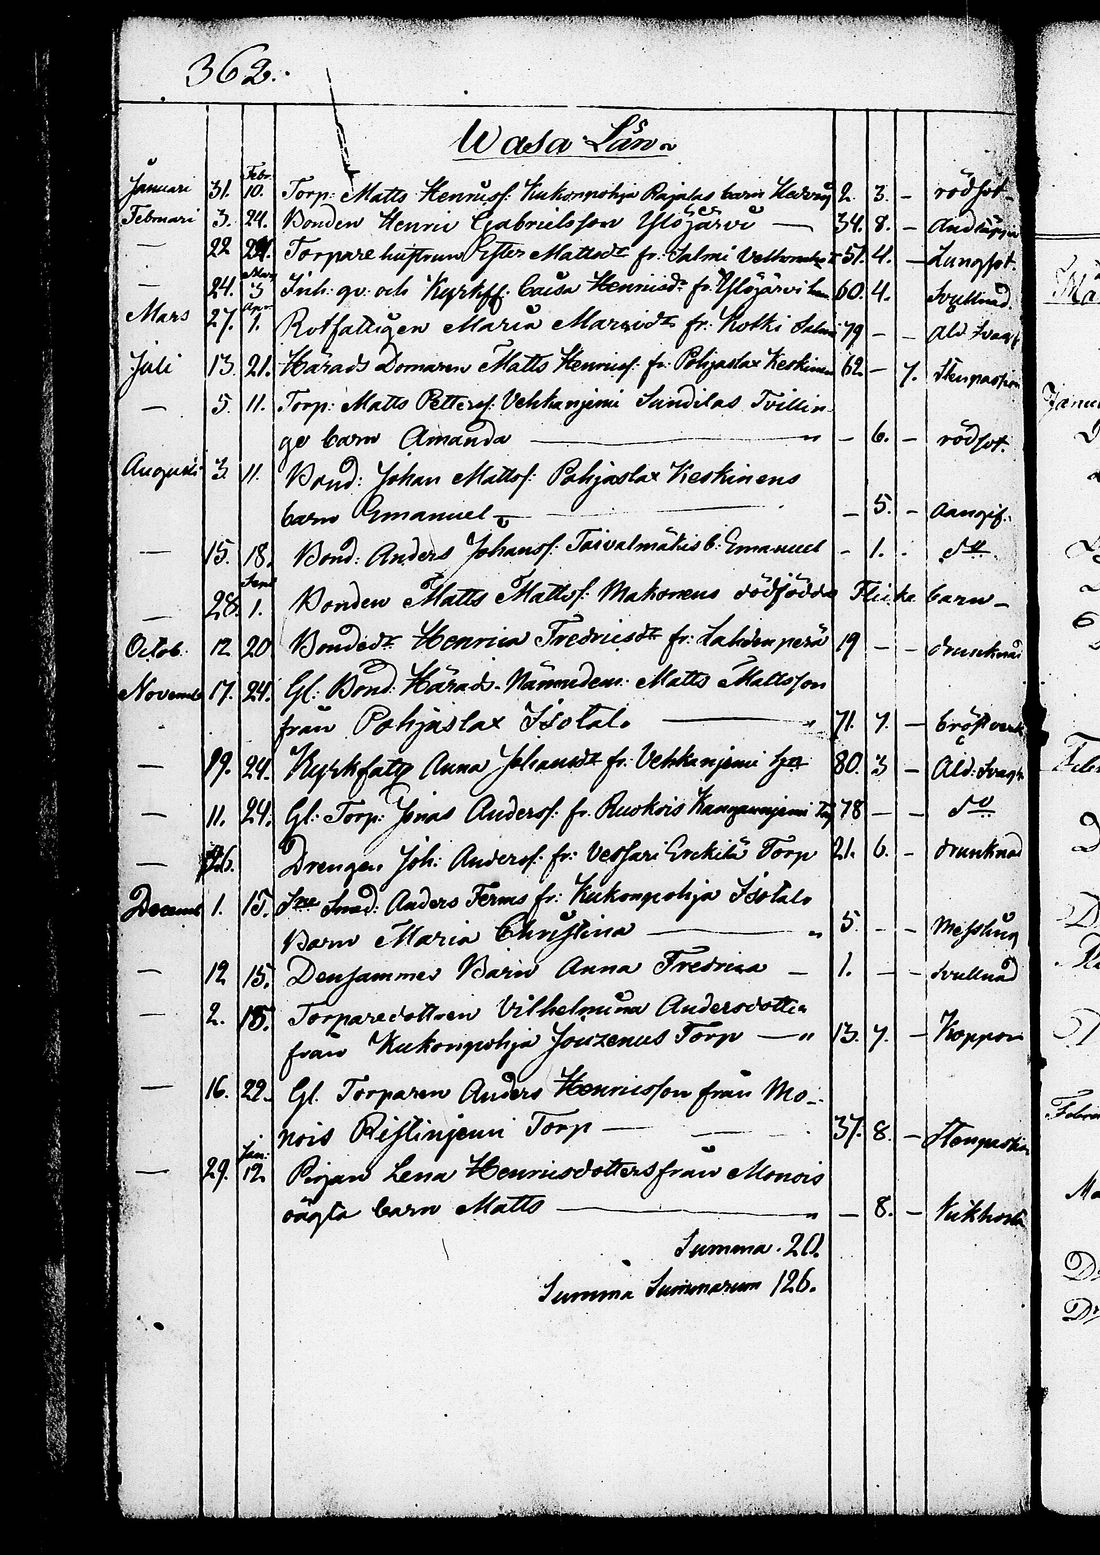 362.
Wasa Län
Januari 31. Febr. 10. Torp: Matts Henrisf: Kukonpohja Rajalas barn Hedvig 2. 3. – rödsot
Februari 3. 24. Bonden Henric Gabrielsson Ylöjärvi — 34. 8. – Andtäppa
— 22 24. Torpare hustrun Ester Mattsdr fr. Salmi 51. 4. – Lungsot.
— 24. Mars 3 Inh: qv: och Kyrkff: Caisa Henricsdr fr: Ylöjärvi 60. 4. Svullnad
Mars 27. Apr. 7. Rotfattigen Maria Marcidr fr: Kotki Salmi 79 – – Ald Svagh
Juli 13. 21. Härads Domaren Matts Henrisf: fr: Pohjaslax Keskinen 62. – 7. Stenpassion
— 5. 11. Torp: Matts Pettersf: Vehkanjemi Sundilas Tvillin
ge barn Amanda — „ – 6. – rödsot.
Augusti 3. 11. Bond: Johan Mattsf: Pohjaslax Keskinens
barn Emanuel — – 5. – Aangif:
— 15. 18. Bond: Anders Johansf: Taivalmäkis b: Emanuel – 1. do
— 28. 1. Bonden Matts Mattsf: Makonens dödfödda Flicka barn –
Octob. 12 20 Bondedr Henrica Fredricsdr fr: Lahdenperä 19 – – drunknad
Novemb 17. 24. Gl: Bond: Härads-Nämndem: Matts Mattsson
från Pohjaslax Isotalo — „ 71. 7. – bröstverk
— 19. 24. Kyrkfatg Anna Johansdr fr: Vehkanjemi 80. 3 – Ald: Svagh
— 11. 24. Gl: Torp: Jonas Andersf: fr: Ruokois Kangasnjemi 78 – – do
— 26. Drengen Joh: Andersf: fr: Vessari Erckilä Torp 21. 6. – drunknad
Decemb 1. 15. Anders Ferms fr: Kukonpohja Isotalo
Barn Maria Christina — „ 5. – – Messling
— 12 15. Densammes Barn Anna Fredrica – 1. – – Svullnad
— 2. 15. Torparedottren Vilhelmina Andersdotter
från Kukonpohja Jouzenus Torp — „ 13. 7. – Koppor
— 16. 22. Gl. Torparen Anders Henricsson från Mo-
nois Ristinjemi Torp — 37. 8. – Stenpassion
— 29. Jan: 12. Pigan Lena Henricsdotters från Monois
oägta barn Matts — „ – 8. – Kikhosta
Summa . 20.
Summa Summarum 126.